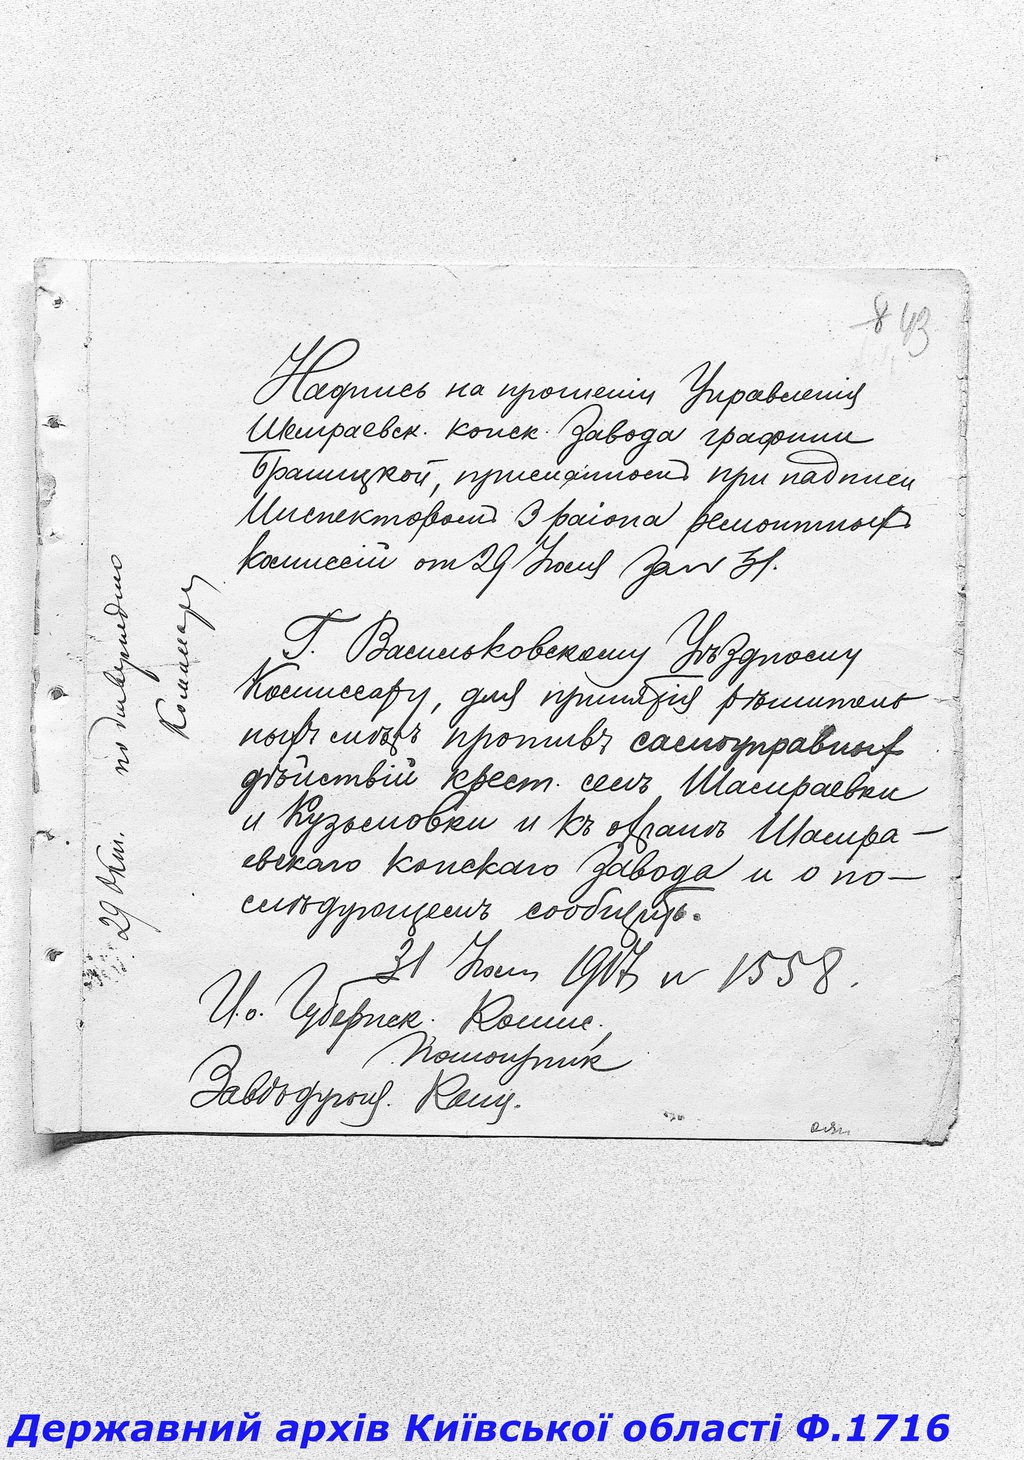 8 43
Надпись на прошеніи Управленія
Шамраевск. конск. Завода графини
Браницкой, присланном при надписи
Инспектором 3 раіона ремонтных
комиссій от 29 Іюля за № 31.
Г. Васильковскому Уѣздному
Комиссару, для принятія рѣшитель
ныхъ мѣръ противъ самоуправных
дѣйствій крест. селъ Шамраевки
и Кузьмовки и къ охранѣ Шамра—
евскаго конскаго Завода и о по—
слѣдующемъ сообщить.
31 Іюля 1917 № 1558.
И.о. Губернск. Комис.
Помощник
Завѣдующ. Канц.
29 Окт. подтверждено
Комиссару
Державний архів Київської області Ф.1716